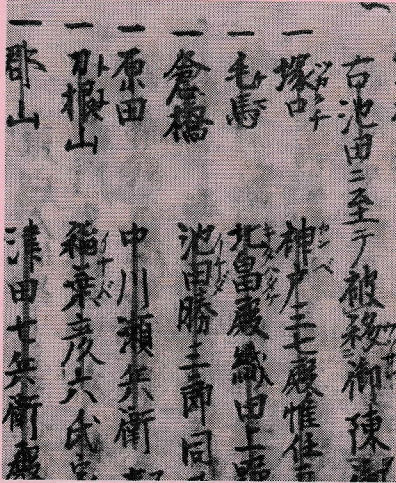 古池田ニ至テ被移御陳
一 塚口 神戸三七殿惟住
一 毛馬 北畠殿織田上
一 倉橋 池田勝三郎同
一 原田 中川瀬兵衛
一 刀根山 稲葉彦六氏
一 郡山 津田七兵衛殿